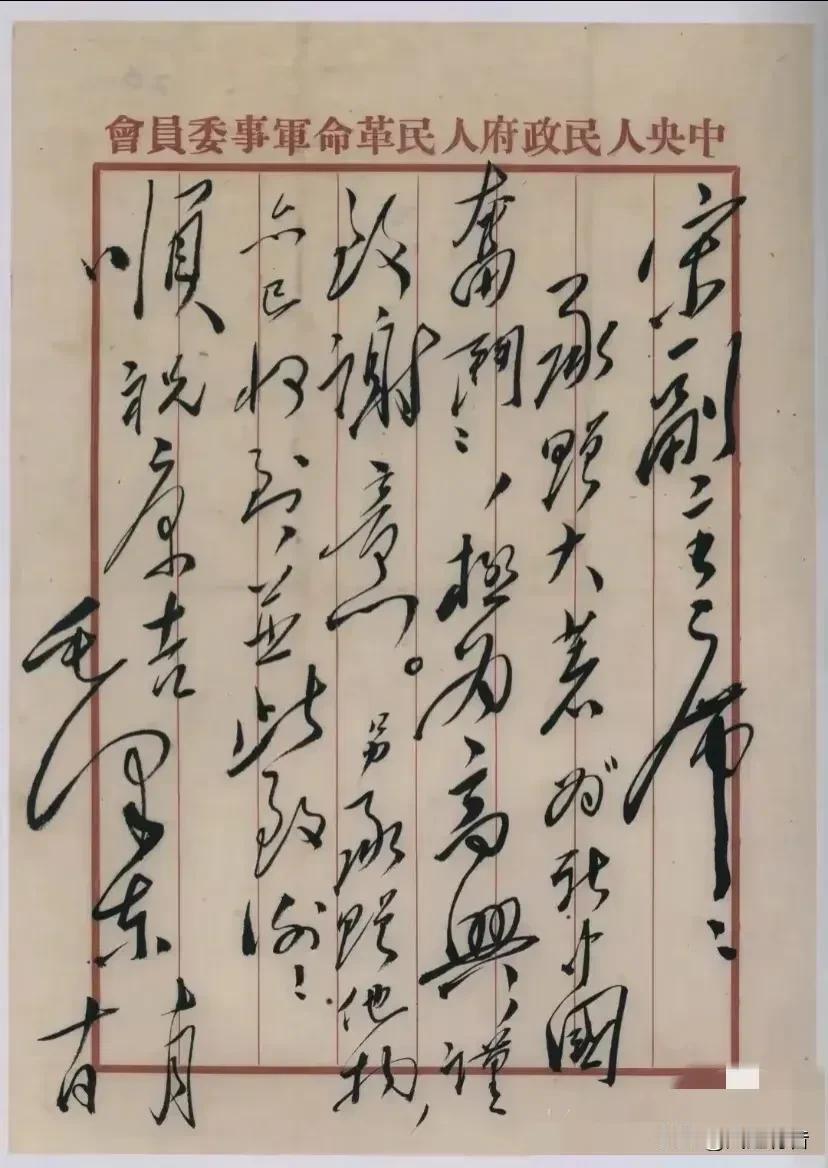 中央人民政府人民革命軍事委員會
宋副主席：
承贈大著為新中國
奮鬥，極為高興，謹
致謝意。另承贈他物，
亦已收到，並此致謝！
順祝康吉
毛澤東
十月